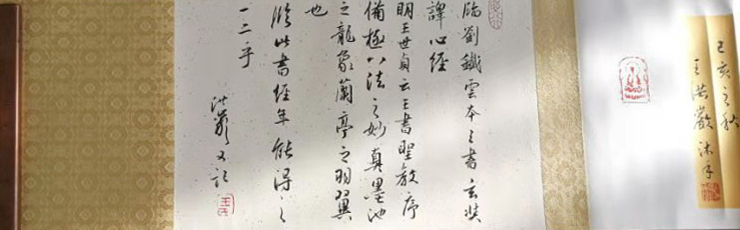 己亥之秋
王洪岩沐手
臨劉鐵雲本王書玄奘
譯心經
明王世貞云王書聖教序
備極八法之妙真墨池
之龍象蘭亭之羽翼
也
臨此書經年能得之
一二乎
洪岩又記